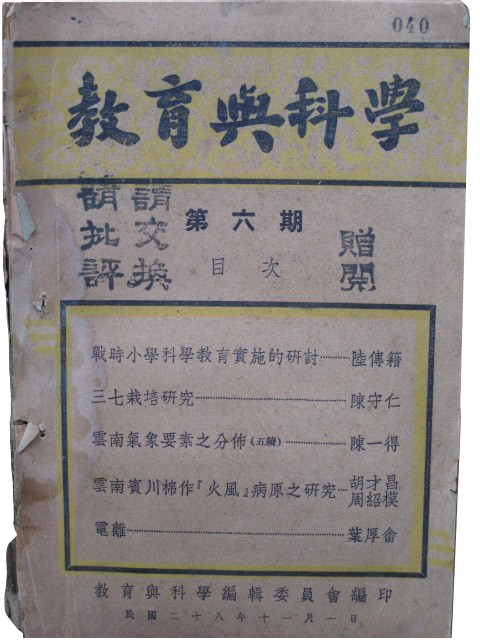 040
教育與科學
第六期
請交換
請批評
贈閱
目次
戰時小學科學教育實施的研討………陸傳籍
三七栽培研究………陳守仁
雲南氣象要素之分佈(五續)………陳一得
雲南賓川棉作『火風』病原之研究…胡才昌 周紹模
電離………葉厚畬
教育與科學編輯委員會編印
民國二十八年十一月一日